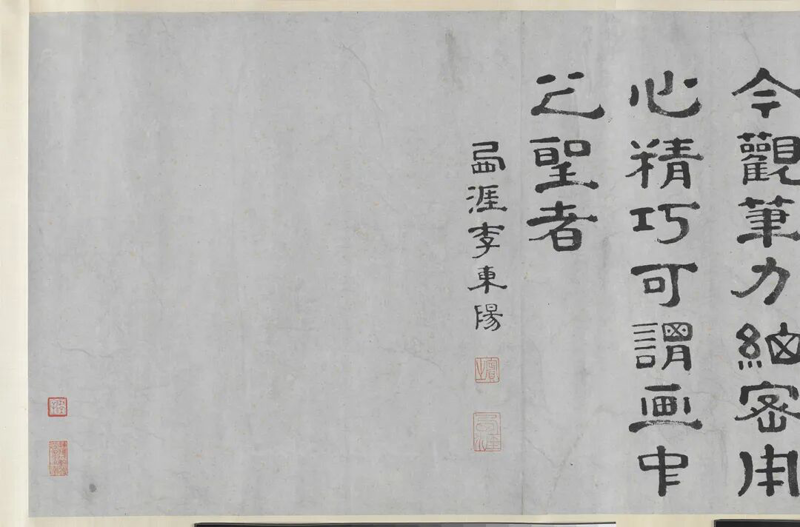 今觀筆力細密用
心精巧可謂画中
之聖者
西涯李東陽
西涯